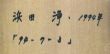 浜田 浄・1990年
「94-9-3」